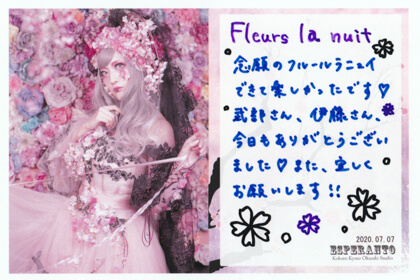 Fleurs la nuit
念願のフルールラニュイ
できて楽しかったです♡
武部さん、伊藤さん、
今日もありがとうござい
ました♡また、宜しく
お願いします!!
2020.07.07
ESPERANTO
Kokoro Kyoto Okazaki Studio